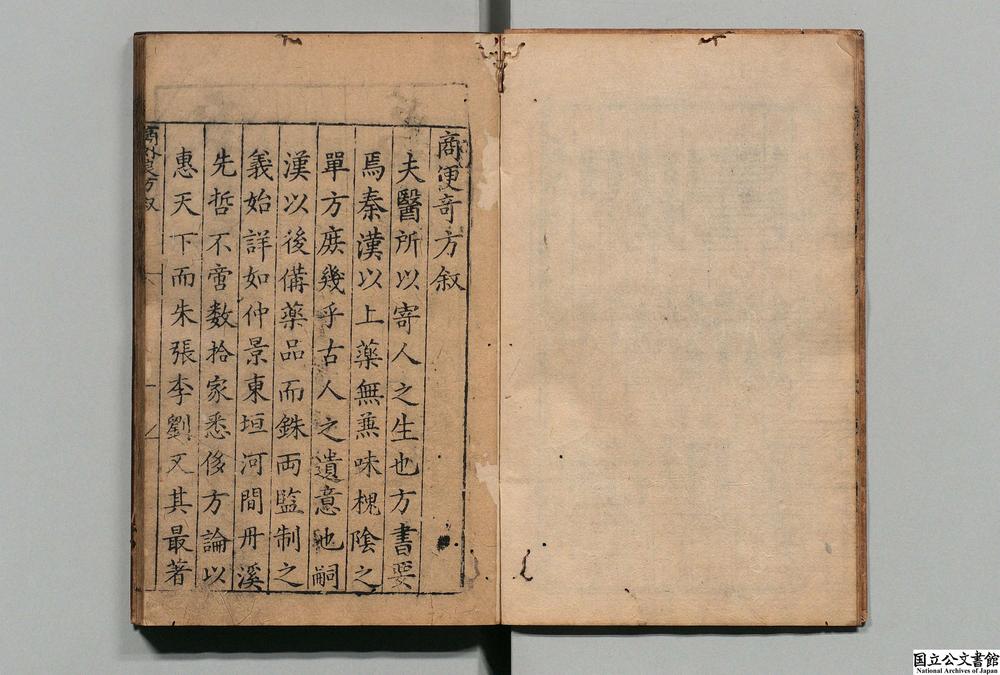 商便奇方叙
夫醫所以寄人之生也方書要
焉秦漢以上藥無兼味槐陰之
單方庻幾乎古人之遺意也嗣
漢以後備藥品而銖両監制之
義始詳如仲景東垣河間丹溪
先哲不啻数拾家悉侈方論以
惠天下而朱張李劉又其最著
方叙
国立公文書館
National Archives of Japan